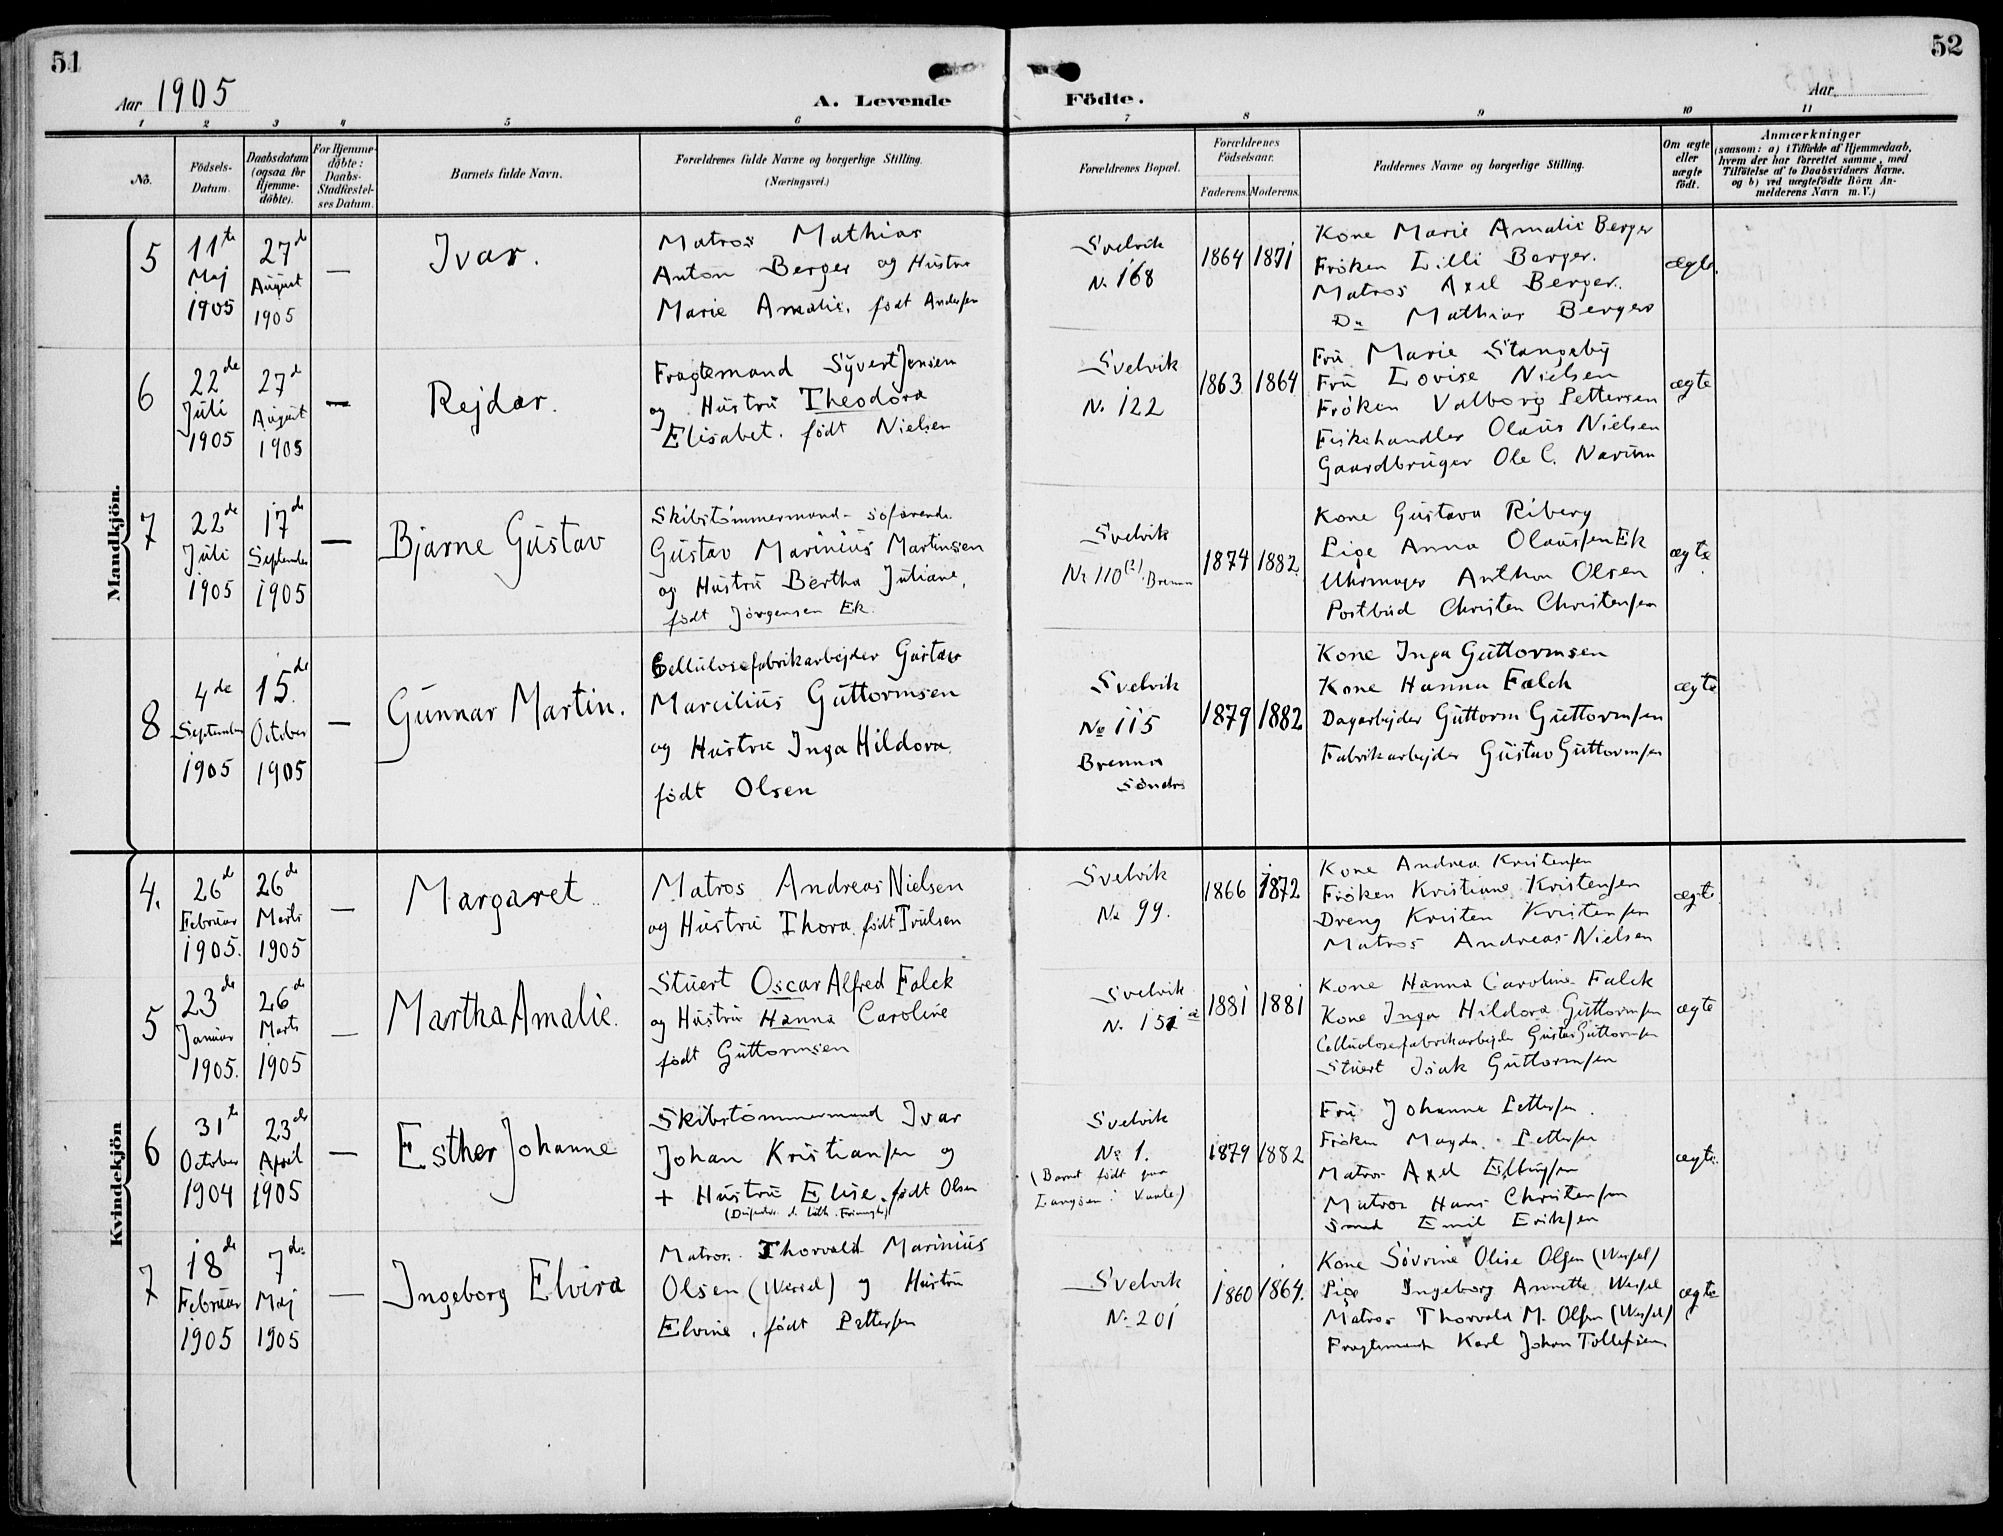 51
52
Aar 1905
A. Levende Födte.
Aar
1 2 3 4 5 6 7 8 9 10 11
No.
Födsels-Datum.
Daabsdatum (ogsaa for Hjemme-döbte).
For Hjemme-döbte: Daabs-Stadfæstel-ses Datum.
Barnets fulde Navn.
Forældrenes fulde Navne og borgerlige Stilling.
(Næringsvei.)
Forældrenes Bopæl.
Forældrenes Födselsaar.
Faderens. Moderens.
Faddernes Navne og borgerlige Stilling.
Om ægte eller uægte födt.
Anmærkninger
(saasom: a) i Tilfælde af Hjemmedaab,
hvem der har forrettet samme, med
Tilföielse af to Daabsvidners Navne.
og b) ved uægtefödte Börn An-
melderens Navn m. V.)
Mandkjön.
5
11te Maj 1905
27de August 1905
—
Ivar.
Matros Mathias
Anton Berger og Hustru
Marie Amalie, født Andersen
Svelvik
No 168
1864 1871
Kone Marie Amalie Berger
Frøken Lilli Berger.
Matros Axel Berger.
Do Mathias Berger
ægte.
6
22de Juli 1905
27de August 1905
—
Rejdar.
Fragtemand Syvert Jensen
og Hustru Theodora
Elisabet. født Nielsen
Svelvik
No 122
1863 1864
Fru Marie Stangeby
Fru Lovise Nielsen
Frøken Valborg Pettersen
Fiskehandler Olaus Nielsen
Gaardbruger Ole C. Narum
ægte
7
22de Juli 1905
17de September 1905
—
Bjarne Gustav
Skibstømmermand - søfarende.
Gustav Marinius Martinsen
og Hustru Bertha Juliane,
født Jörgensen Ek.
Svelvik
No 110(2). Brenna
1874 1882
Kone Gustava Riberg
Pige Anna Olaussen Ek
Uhrmager Anthon Olsen
Postbud Christen Christensen
ægte.
8
4de September 1905
15de October 1905
—
Gunnar Martin.
Cellulosefabrikarbejder Gustav
Marcilius Guttormsen
og Hustru Inga Hildora,
født Olsen
Svelvik
No 115
Brenna
søndre
1879 1882
Kone Inga Guttormsen
Kone Hanna Falck
Dagarbejder Guttorm Guttormsen
Fabrikarbejder Gustav Guttormsen
ægte
Kvindekjön
4.
26de Februar 1905.
26de Marts 1905
—
Margaret
Matros Andreas Nielsen
og Hustru Thora, født Trulsen
Svelvik
No 99.
1866 1872
Kone Andrea Kristensen
Frøken Kristiane Kristensen
Dreng Kristen Kristensen
Matros Andreas Nielsen
ægte.
5
23de Januar 1905.
26de Marts 1905
—
Martha Amalie.
Stuert Oscar Alfred Falck
og Hustru Hanna Caroline
født Guttormsen
Svelvik
No 151a
1881 1881
Kone Hanna Caroline Falck
Kone Inga Hildora Guttormsen
Cellulosefabrikarbejder Gustav Guttormsen
Stuert Isak Guttormsen
ægte
6
31te October 1904
23de April 1905
—
Esther Johanne
Skibstømmermand Ivar
Johan Kristiansen og
+ Hustru Elise, født Olsen
Svelvik
No 1.
(Barnet født paa
Langøen i Vaale)
1879 1882
Fru Johanna Pettersen.
Frøken Magda Pettersen
Matros Axel Ellingsen
Matros Hans Christensen
Smed Emil Eriksen
ægte.
7
18de Februar 1905
7de Maj 1905
—
Ingeborg Elvira
Matros. Thorvald Marinius
Olsen (Wessel) og Hustru
Elvine, født Pettersen
Svelvik
No 201
1860 1864.
Kone Søvrine Olise Olsen (Wessel)
Pige Ingeborg Annette Wessel
Matros Thorvald M. Olsen (Wessel)
Fragtemand Karl Johan Tollefsen
ægte